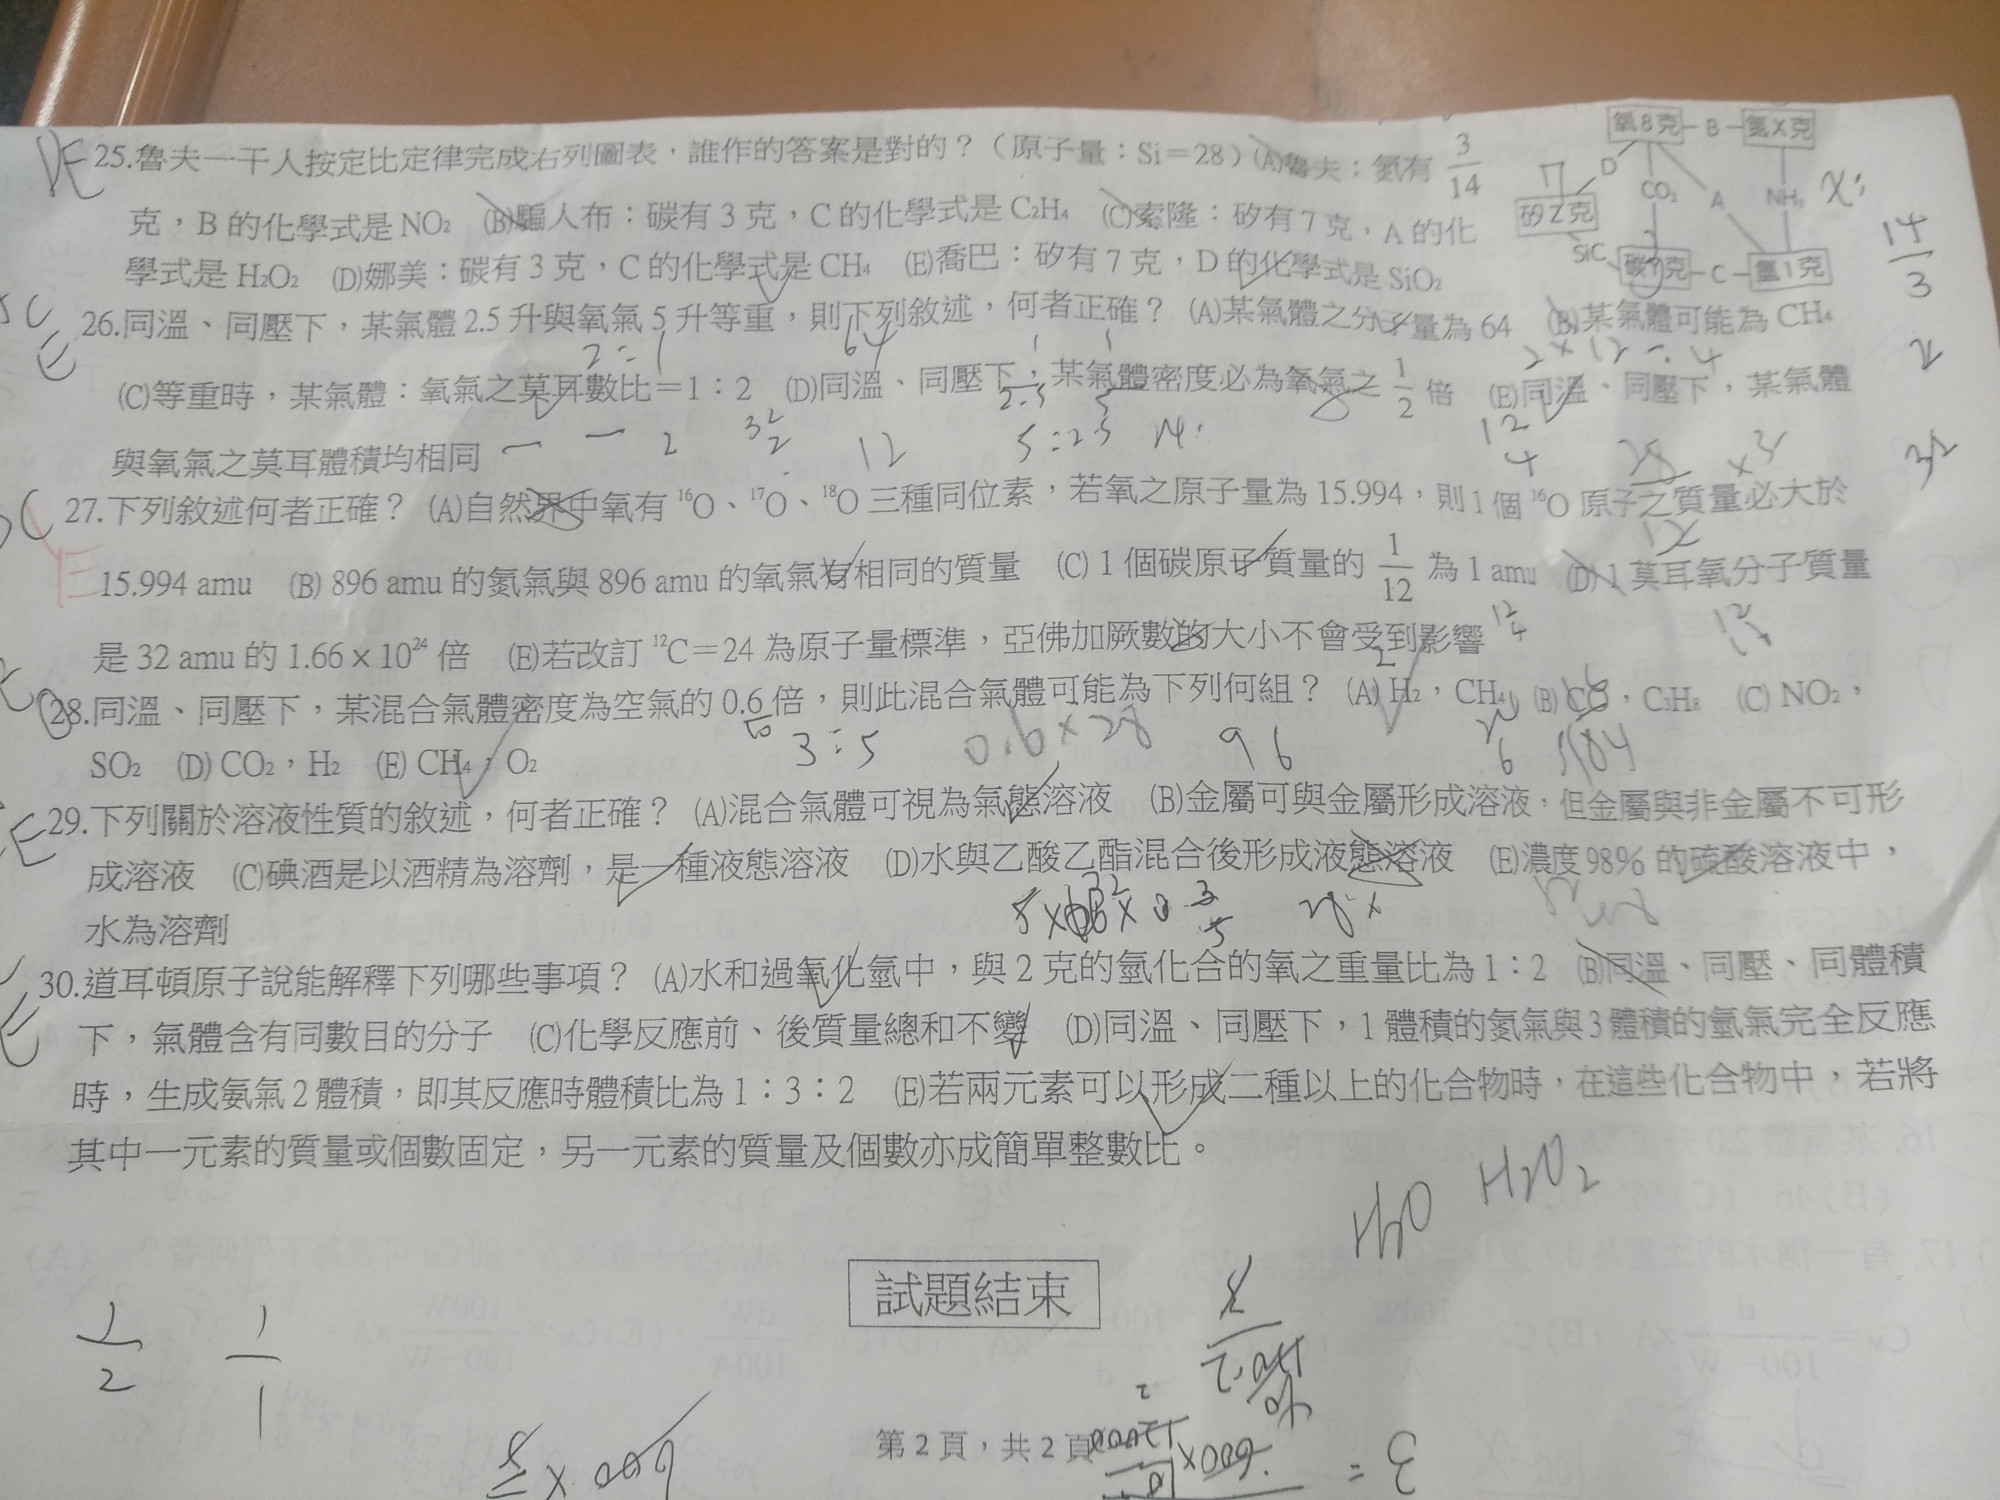 DE 25.魯夫一干人按定比定律完成右列圖表，誰作的答案是對的？（原子量：Si＝28）(A)魯夫：氮有 3/14
克，B 的化學式是 NO₂ (B)騙人布：碳有 3 克，C 的化學式是 C₂H₄ (C)索隆：矽有 7 克，A 的化
學式是 H₂O₂ (D)娜美：碳有 3 克，C 的化學式是 CH₄ (E)喬巴：矽有 7 克，D 的化學式是 SiO₂
氧8克 B 氮X克
D CO₂ A NH₃ X:
矽Z克
14/3
SiC 碳Y克 C 氫1克
26.同溫、同壓下，某氣體 2.5 升與氧氣 5 升等重，則下列敘述，何者正確？ (A)某氣體之分子量為 64 (B)某氣體可能為 CH₄
2:1 64
(C)等重時，某氣體：氧氣之莫耳數比＝1：2 (D)同溫、同壓下，某氣體密度必為氧氣之 1/2 倍 (E)同溫、同壓下，某氣體
與氧氣之莫耳體積均相同
2 12 5:2.5
27.下列敘述何者正確？ (A)自然界中氧有 ¹⁶O、¹⁷O、¹⁸O 三種同位素，若氧之原子量為 15.994，則 1 個 ¹⁶O 原子之質量必大於
15.994 amu (B) 896 amu 的氮氣與 896 amu 的氧氣有相同的質量 (C) 1 個碳原子質量的 1/12 為 1 amu (D) 1 莫耳氧分子質量
是 32 amu 的 1.66 × 10²⁴ 倍 (E)若改訂 ¹²C＝24 為原子量標準，亞佛加厥數的大小不會受到影響
28.同溫、同壓下，某混合氣體密度為空氣的 0.6 倍，則此混合氣體可能為下列何組？ (A) H₂，CH₄ (B) CO，C₃H₈ (C) NO₂，
SO₂ (D) CO₂，H₂ (E) CH₄，O₂
3:5 0.6×28 96
29.下列關於溶液性質的敘述，何者正確？ (A)混合氣體可視為氣態溶液 (B)金屬可與金屬形成溶液，但金屬與非金屬不可形
成溶液 (C)碘酒是以酒精為溶劑，是一種液態溶液 (D)水與乙酸乙酯混合後形成液態溶液 (E)濃度 98% 的硫酸溶液中，
水為溶劑
30.道耳頓原子說能解釋下列哪些事項？ (A)水和過氧化氫中，與 2 克的氫化合的氧之重量比為 1：2 (B)同溫、同壓、同體積
下，氣體含有同數目的分子 (C)化學反應前、後質量總和不變 (D)同溫、同壓下，1 體積的氮氣與 3 體積的氫氣完全反應
時，生成氨氣 2 體積，即其反應時體積比為 1：3：2 (E)若兩元素可以形成二種以上的化合物時，在這些化合物中，若將
其中一元素的質量或個數固定，另一元素的質量及個數亦成簡單整數比。
H₂O H₂O₂
試題結束
1/2 1/1
第 2 頁，共 2 頁